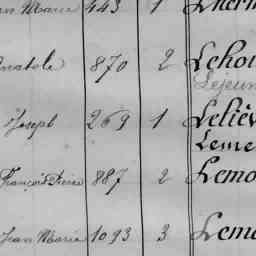 Jean Marie 443 1 Lherm
Anatole 870 2 Lehou
Lejeun
Joseph 269 1 Lelièv
Leme
François Pierre 887 2 Lemo
Jean Marie 1093 3 Leme